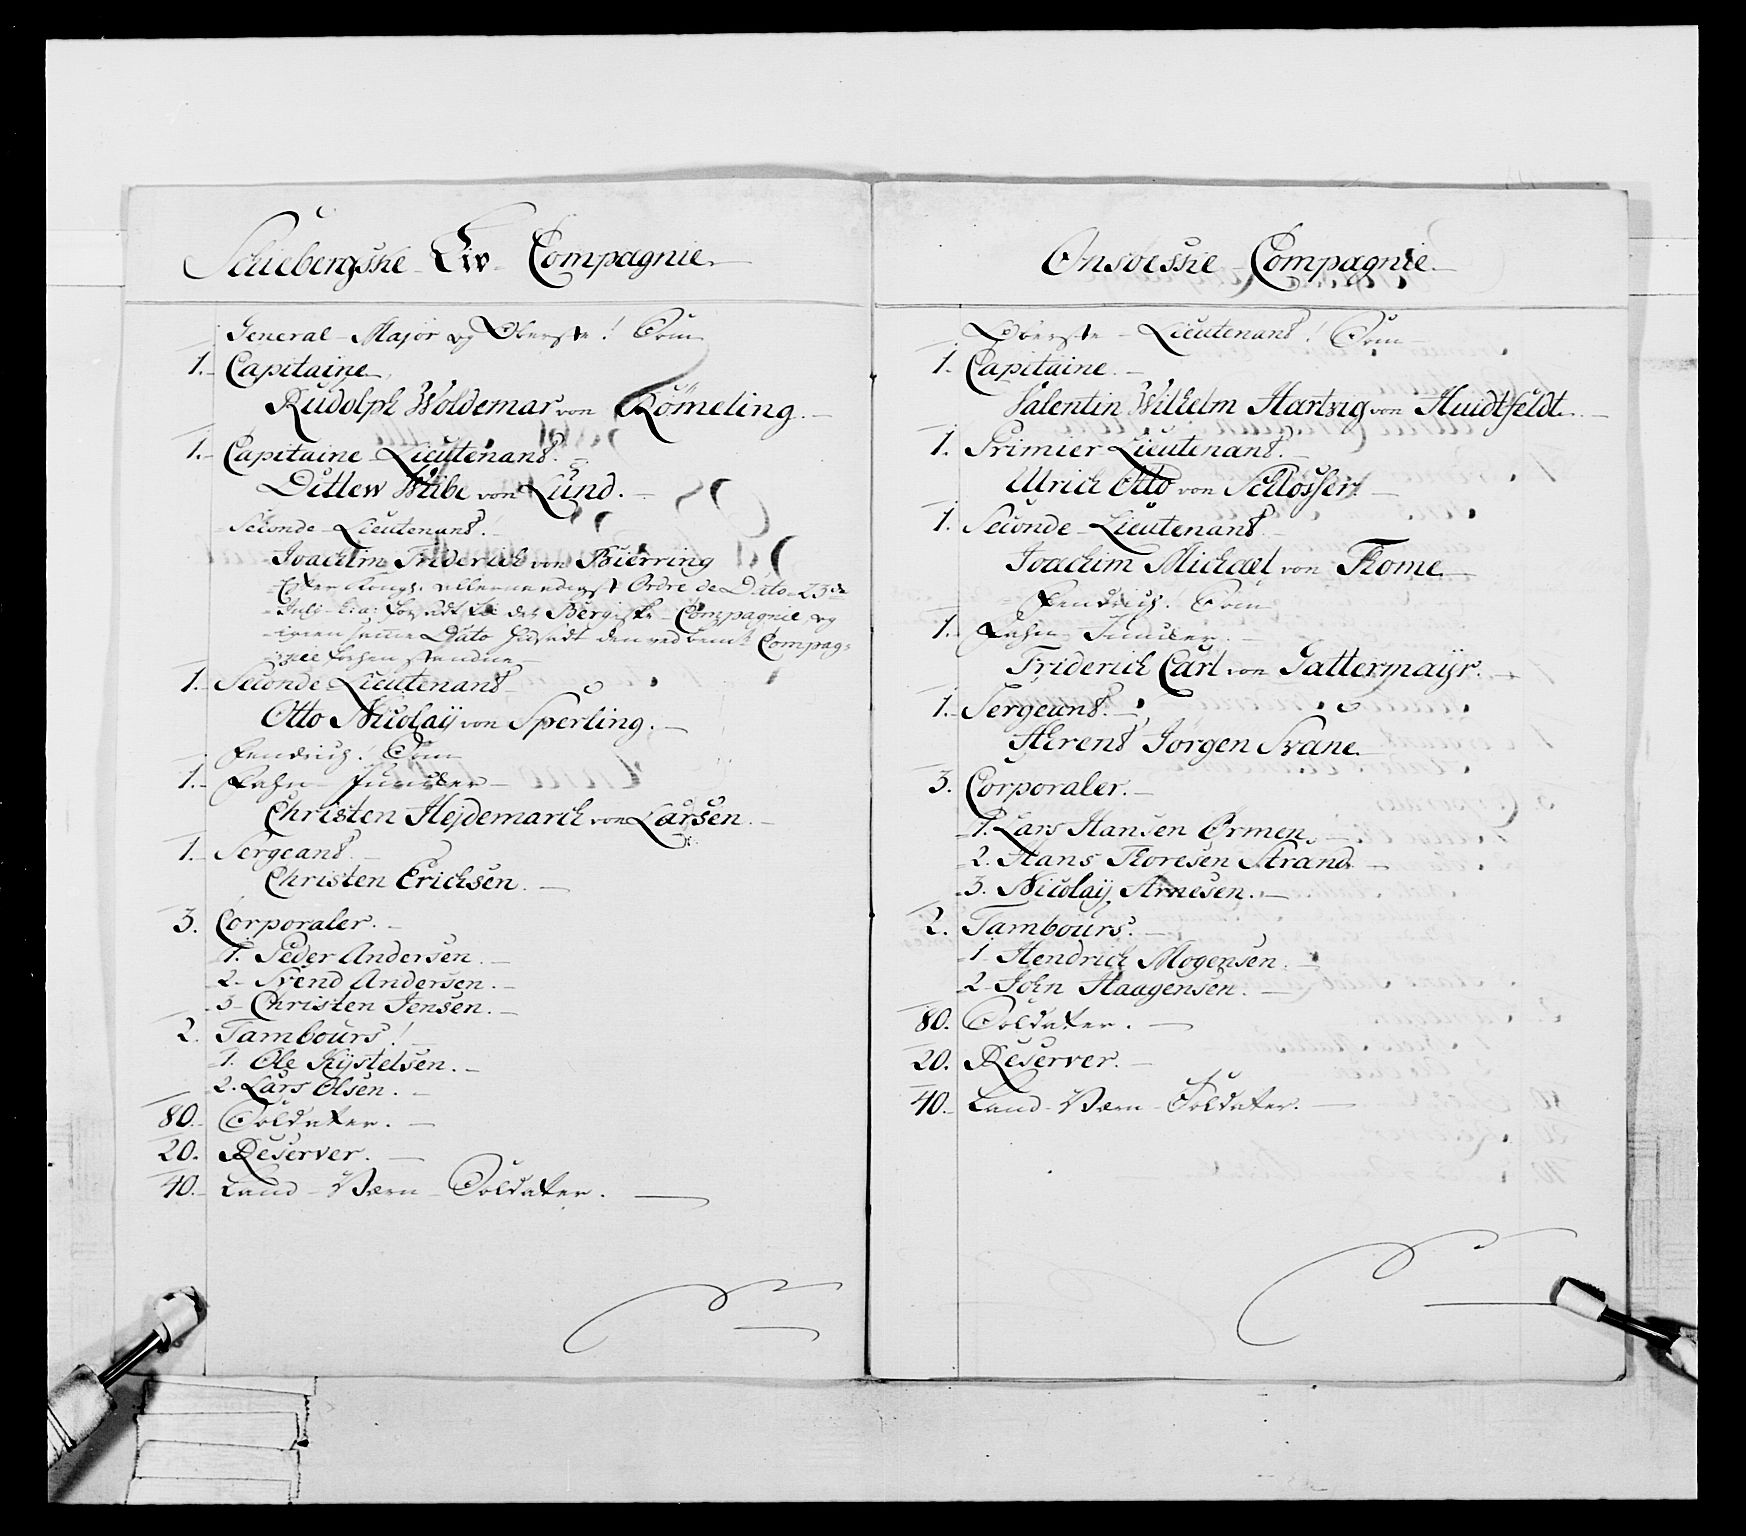 Schiebergske Liv Compagnie.
General-Major og Oberste! Tom
1. Capitaine
Rudolph Woldemar von Römeling.
1. Capitaine Lieutenant.
Ditlew Wibe von Lund.
Seconde-Lieutenant!
Joachim Friderich von Bierring
Efter Kongl. allernaadigst Ordre de Dato 23de
Juli d: a: forsadt til det Bergiske Compagnie, og
igien samme Dato hidsadt den ved bemte Compag-
nie forhen staaende
1. Seconde Lieutenant
Otto Nicolaÿ von Sperling.
Fendrich! Tom
1. Fahn-Juncker
Christen Hejdemarch von Larsen.
1. Sergeant.
Christen Erichsen.
3. Corporaler.
1. Peder Andersen.
2. Svend Andersen.
3. Christen Jensen.
2. Tambours!
1. Ole Kystelsen.
2. Lars Olsen.
80. Soldater.
20. Reserver.
40. Land-Værn-Soldater.
Onsoeske Compagnie.
Oberste-Lieutenant! Tom
1. Capitaine.
Valentin Wilhelm Hartvig von Huidtfeldt.
1. Primier Lieutenant.
Ulrich Otto von Schlosser
1. Seconde-Lieutenant.
Joachim Michael von Thome.
Fendrich! Tom
1. Fahn-Juncker.
Friderich Carl von Gattermaÿr.
1. Sergeant.
Ahrent Jørgen Svane.
3. Corporaler.
1. Lars Hansen Ørmen.
2. Hans Thoresen Strand.
3. Nicolaÿ Arnesen.
2. Tambours.
1. Hendrich Mogensen.
2. John Haagensen.
80. Soldater.
20. Reserver.
40. Land-Værn-Soldater.